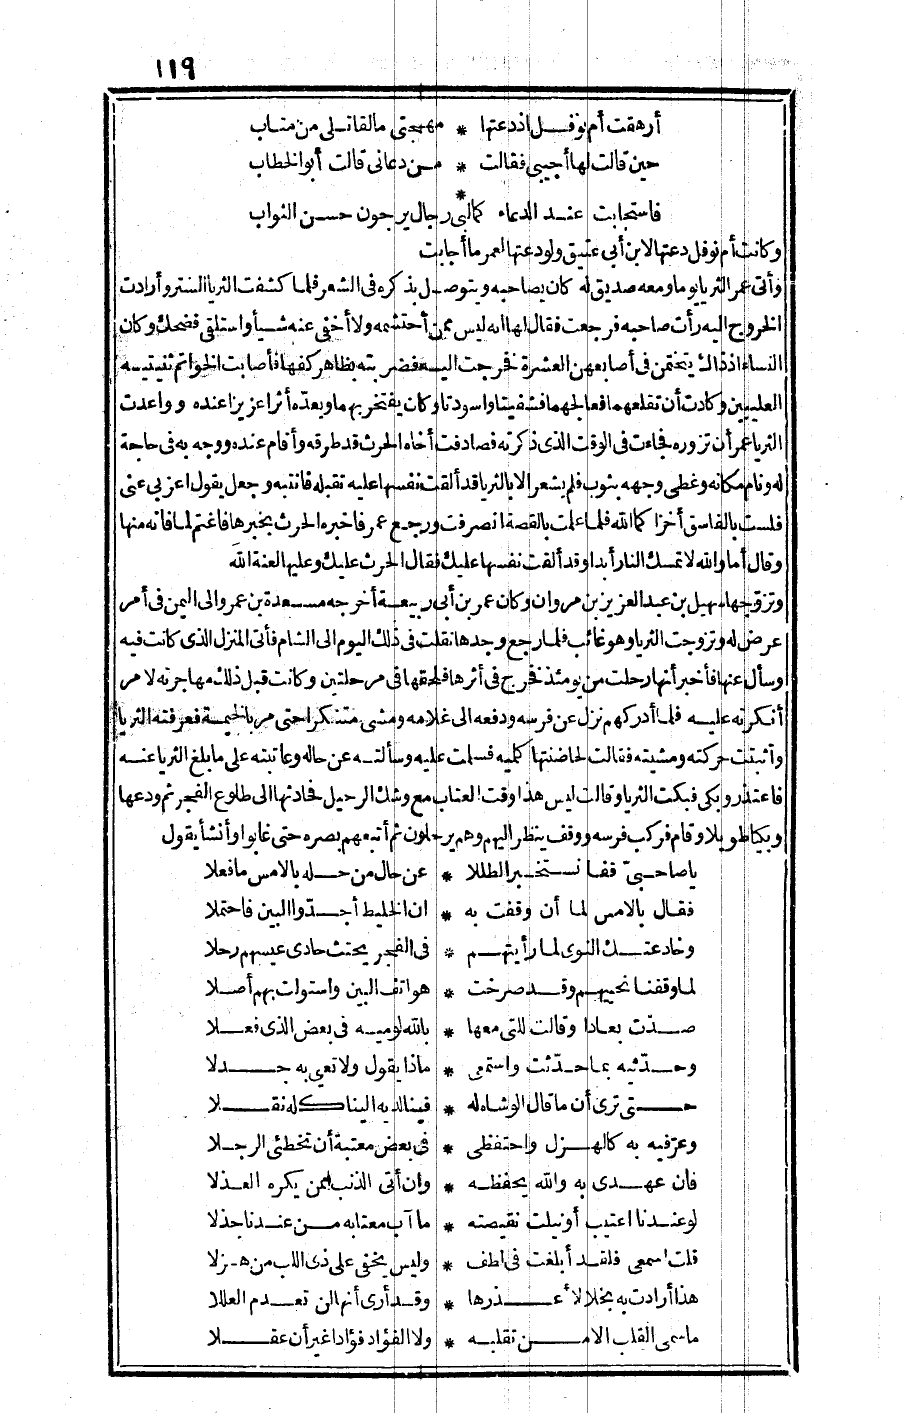 ١١٩
أرهقت أم نوفل اذ دعتها * مهجتى مالقاتلى من متاب
حين قالت لها أجيبى فقالت * من دعانى قالت أبو الخطاب
*
فاستجابت عند الدعاء كمالبى رجال يرجون حسن الثواب
وكانت أم نوفل دعتها لابن أبى عتيق ولودعتها لعمر ما أجابت
وأتى عمر الثريا يوما ومعه صديق له كان يصاحبه ويتوصل بذكره فى الشعر فلما كشفت الثريا الستر وأرادت
الخروج اليه رأت صاحبه فرجعت فقال لها انه ليس ممن أحتشمه ولا أخفى عنه شيأ واستلقى فضحك وكان
النساء اذ ذاك يتختمن فى أصابعهن العشرة فخرجت اليه فضربته بظاهر كفها فأصابت الخواتم ثنيتيه
العليين وكادت أن تقلعهما فعالجهما فشفيتا واسودتا وكان يفتخر بهما ويعده أثرا عزيزا عنده وواعدت
الثريا عمر أن تزوره فجاءت فى الوقت الذى ذكرته فصادفت أخاه الحرث قد طرقه وأقام عنده ووجه به فى حاجة
له ونام مكانه وغطى وجهه بثوب فلم يشعر الا بالثريا قد ألقت نفسها عليه تقبله فانتبه وجعل يقول اعزبى عنى
فلست بالفاسق أخزا كما الله فلما علمت بالقصة انصرفت ورجع عمر فاخبره الحرث بخبرها فاغتم لما فاته منها
وقال أما والله لا تمسك النار أبدا وقد ألقت نفسها عليك فقال الحرث عليك وعليها لعنة الله
وتزوجها سهيل بن عبد العزيز بن مروان وكان عمر بن أبى ربيعة أخرجه مسعدة بن عمرو الى اليمن فى أمر
عرض له وتزوجت الثريا وهو غائب فلما رجع وجدها نقلت فى ذلك اليوم الى الشام فأتى المنزل الذى كانت فيه
وسأل عنها فأخبر أنها رحلت من يومئذ فخرج فى أثرها فلحقها فى مرحلتين وكانت قبل ذلك مهاجرته لامر
أنكرته عليه فلما أدركهم نزل عن فرسه ودفعه الى غلامه ومشى متنكرا حتى مر بالخيمة فعرفته الثريا
وأثبتت حركته ومشيته فقالت لحاضنتها كلميه فسلمت عليه وسألته عن حاله وعاتبته على ما بلغ الثريا عنه
فاعتذر وبكى فبكت الثريا وقالت ليس هذا وقت العتاب مع وشك الرحيل فحادثها الى طلوع الفجر ثم ودعها
وبكيا طويلا وقام فركب فرسه ووقف ينظر اليهم وهم يرحلون ثم أتبعهم بصره حتى غابوا وأنشأ يقول
يا صاحبىّ قفا نستخبر الطللا * عن حال من حله بالامس ما فعلا
فقال بالامس لما أن وقفت به * ان الخليط أجدوا البين فاحتملا
وخادعتك النوى لما رأيتهم * فى الفجر يحتث حادى عيسهم رحلا
لما وقفنا نحييهم وقد صرخت * هواتف البين واستولت بهم أصلا
صدت بعادا وقالت للتى معها * بالله لوميه فى بعض الذى فعلا
وحدثيه بما حدثت واستمعى * ماذا يقول ولا تعي به جدلا
حتى ترى أن ما قال الوشاه له * فينا لديه الينا كله نقلا
وعرفيه به كالهزل واحتفظى * فى بعض معتبة أن تخطئى الرجلا
فان عهدى به والله يحفظه * وان أتى الذنب ممن يكره العذلا
لو عندنا اغتيب أو نيلت نقيصته * ما آب مغتابه من عندنا جذلا
قلت اسمعى فلقد أبلغت فى لطف * وليس يخفى على ذى اللب من هزلا
هذا أرادت به بخلا لأعذرها * وقد أرى أنها لن تعدم العللا
ما سمى القلب الا من تقلبه * ولا الفؤاد فؤادا غير أن عقلا